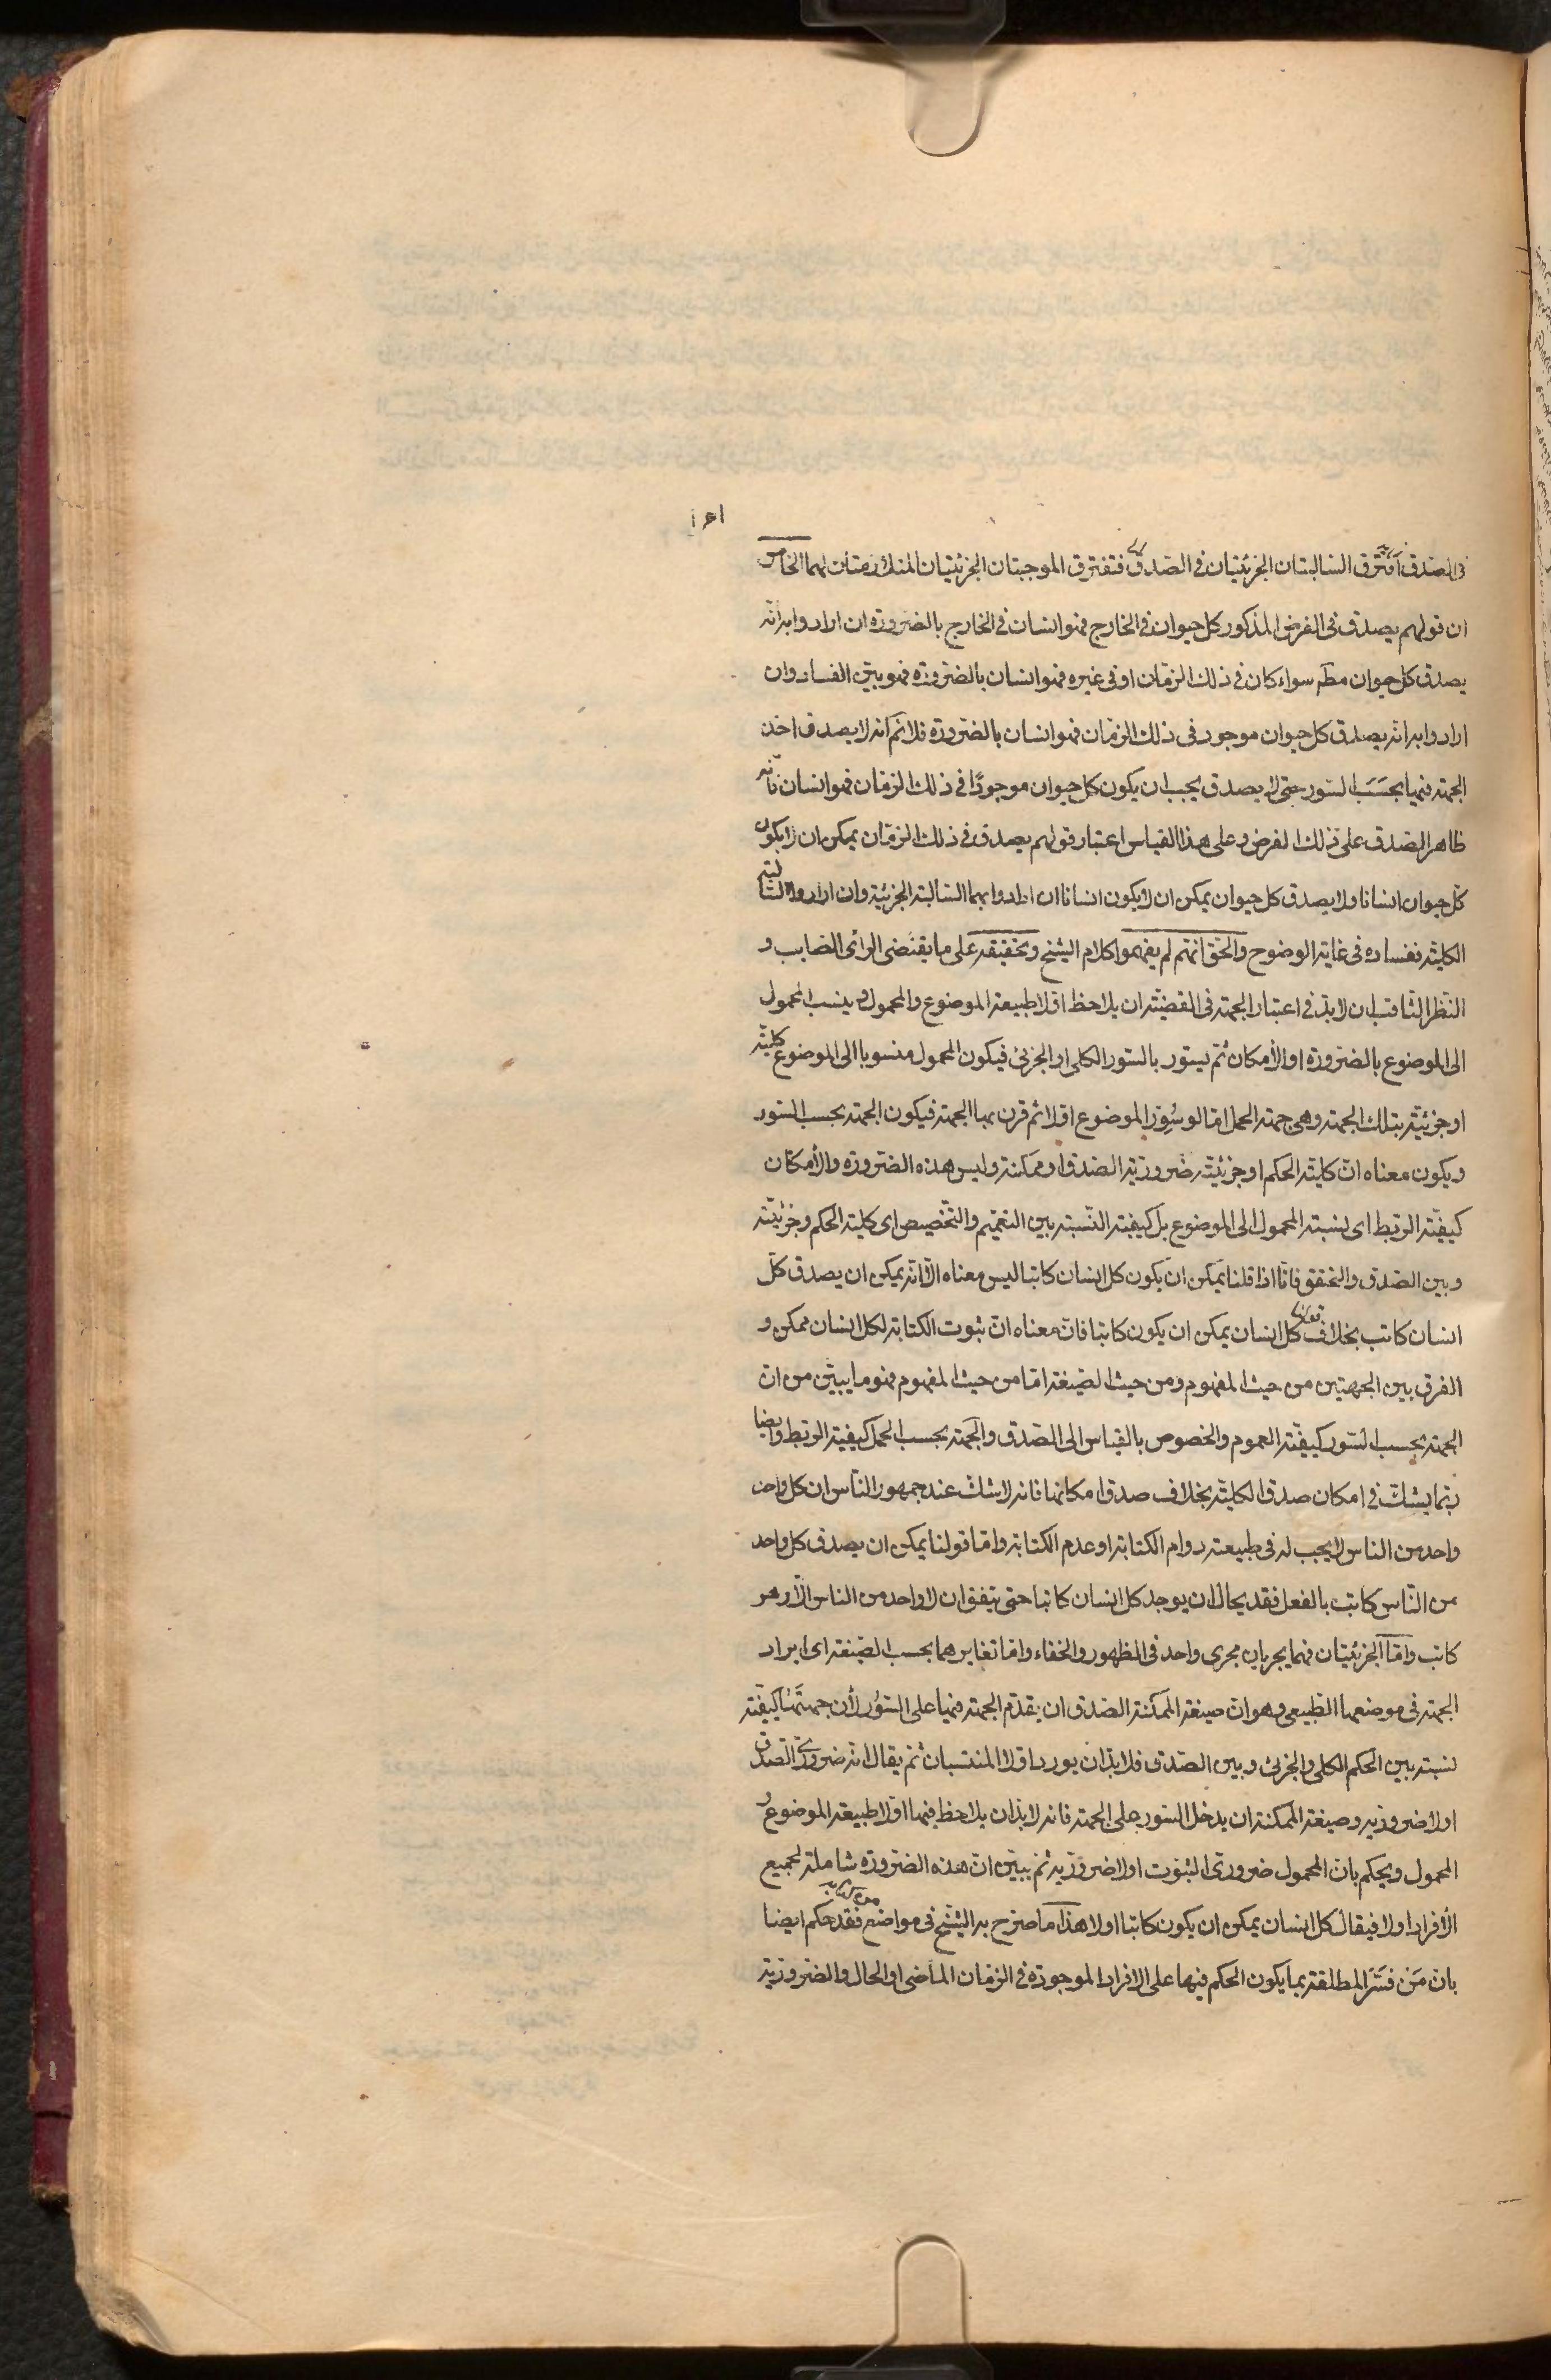 في الصدق افترق السالبتان الجزئيتان في الصدق فتفترق الموجبتان الجزئيتان المتلازمتان لهما الخامس
ان قولهم يصدق في الفرض المذكور كل حيوان في الخارج فهو انسان في الخارج بالضرورة ان ارادوا به انه
يصدق كل حيوان مطم سواء كان في ذلك الزمان او في غيره فهو انسان بالضرورة فهو بيّن الفساد وان
ارادوا به انه يصدق كل حيوان موجود في ذلك الزمان فهو انسان بالضرورة فلانم انه لا يصدق اخذ
الجهة فيها بحسب السور حتى لا يصدق يجب ان يكون كل حيوان موجودًا في ذلك الزمان فهو انسان فانه
ظاهر الصدق على ذلك الفرض وعلى هذا القياس اعتبار قولهم يصدق في ذلك الزمان يمكن ان لا يكون
كل حيوان انسانا ولا يصدق كل حيوان يمكن ان لا يكون انسانا ان ارادوا بهما السالبة الجزئية وان ارادوا السالبة
الكلية ففساده في غاية الوضوح والحق انهم لم يفهموا كلام الشيخ وتحقيقه على ما يقتضى الرأى الصايب و
النظر الثاقب ان لابد في اعتبار الجهة في القضية ان يلاحظ اولا طبيعة الموضوع والمحمول وينسب المحمول
الى الموضوع بالضرورة او الامكان ثم يسور بالسور الكلى او الجزئى فيكون المحمول منسوبا الى الموضوع كلية
او جزئية بتلك الجهة وهى جهة الحمل اما لو سُوّر الموضوع اولا ثم قرن بها الجهة فيكون الجهة بحسب السور
ويكون معناه ان كلية الحكم او جزئيته ضرورية الصدق او ممكنة وليس هذه الضرورة والامكان
كيفية الربط اى لنسبة المحمول الى الموضوع بل كيفية النسبة بين التعميم والتخصيص اى كلية الحكم وجزئيته
وبين الصدق والتحقق فانا اذا قلنا يمكن ان يكون كل انسان كاتبا ليس معناه الا انه يمكن ان يصدق كل
انسان كاتب بخلاف قولنا كل انسان يمكن ان يكون كاتبا فان معناه ان ثبوت الكتابة لكل انسان ممكن و
الفرق بين الجهتين من حيث المفهوم ومن حيث الصيغة اما من حيث المفهوم فهو ما يبين من ان
الجهة بحسب السور كيفية العموم والخصوص بالقياس الى الصدق والجهة بحسب الحمل كيفية الربط وايضا
ربما يشك في امكان صدق الكلية بخلاف صدق امكانها فانه لا شك عند جمهور الناس ان كل واحد
واحد من الناس لا يجب له في طبيعته دوام الكتابة او عدم الكتابة واما قولنا يمكن ان يصدق كل واحد
من الناس كاتب بالفعل فقد يحال ان يوجد كل انسان كاتبا حتى يتفق ان لا واحد من الناس الا وهو
كاتب واما الجزئيتان فهما يجريان مجرى واحد في الظهور والخفاء واما تغايرهما بحسب الصيغة اى ايراد
الجهة في موضعها الطبيعى وهو ان صيغة الممكنة الصدق ان يقدّم الجهة فيها على السور لأن جهتها كيفية
نسبة بين الحكم الكلى والجزئى وبين الصدق فلا بدّ ان يورد اولا المنتسبان ثم يقال انه ضرورى الصدق
اولا ضروريه وصيغة الممكنة ان يدخل السور على الجهة فانه لابد ان يلاحظ فيها اولا طبيعة الموضوع و
المحمول ويحكم بان المحمول ضرورى الثبوت اولا ضروريه ثم يبيّن ان هذه الضرورة شاملة لجميع
الأفراد اولا فيقال كل انسان يمكن ان يكون كاتبا اولا هذا ما صرح به الشيخ في مواضع فقد حكم ايضا
بان مَن فسّر المطلقة بما يكون الحكم فيها على الافراد الموجودة في الزمان الماضى او الحال والضرورية